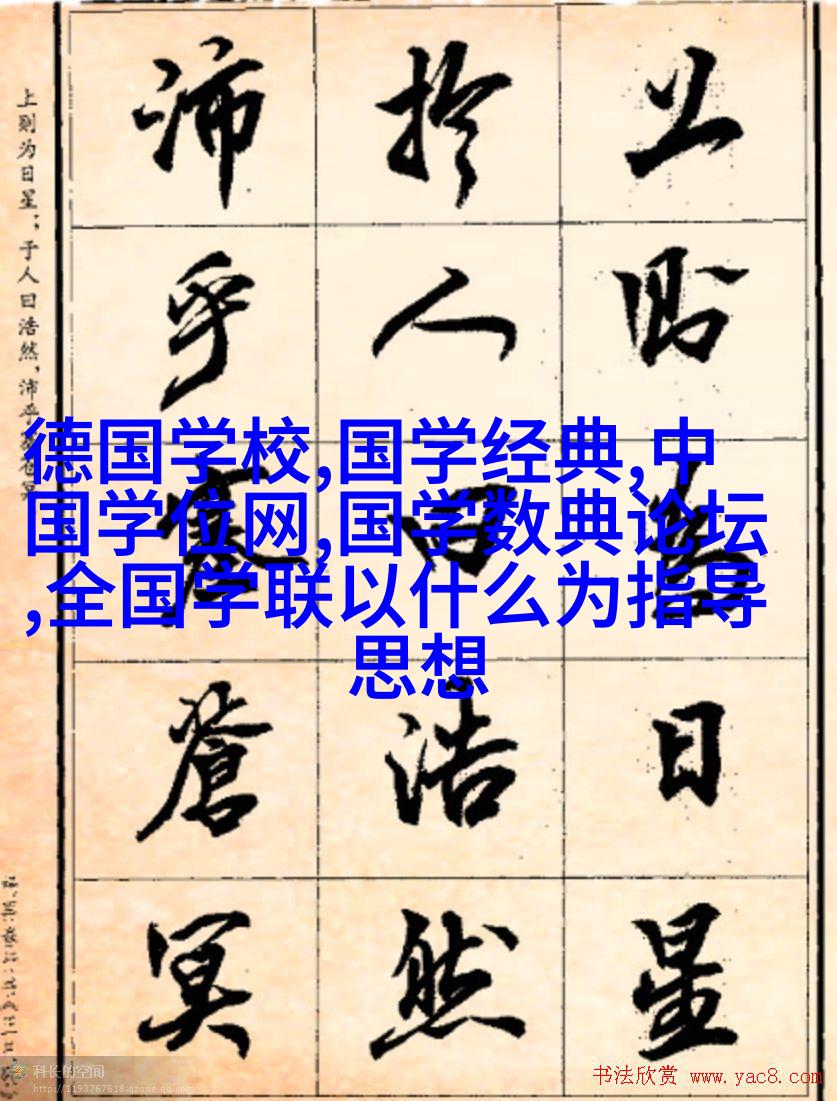 上则为日星；于人曰浩然，沛乎
德国学校,国学经典,中
国学位网,国学数典论坛
,全国学联以什么为指导
思想
上則為日星
於人曰浩然
沛乎塞蒼冥
科长的空间
http://1193767618.qzone.qq.com
书法欣赏 www.yac8.com